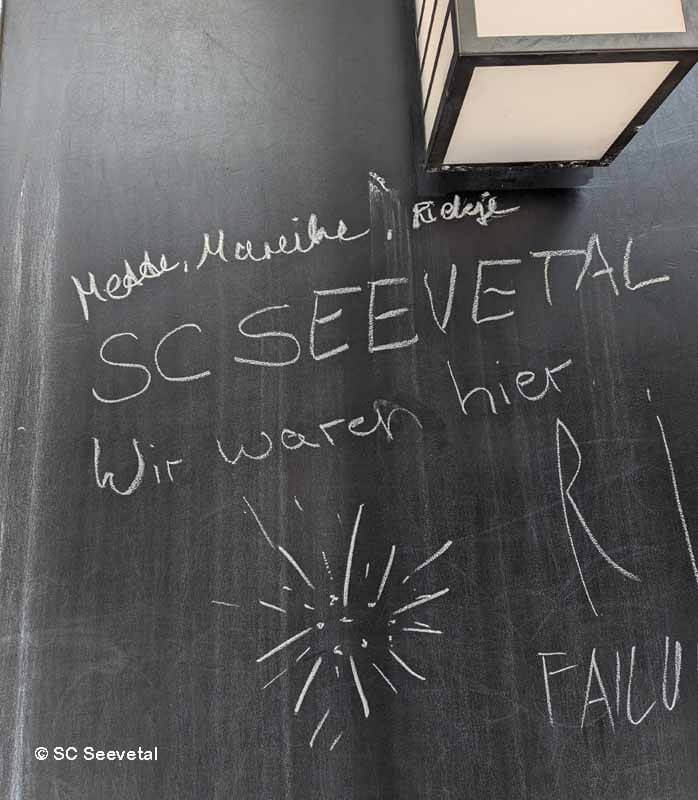 Mareike,
SC SEEVETAL
Wir waren hier
Ri
FAILU
© SC Seevetal